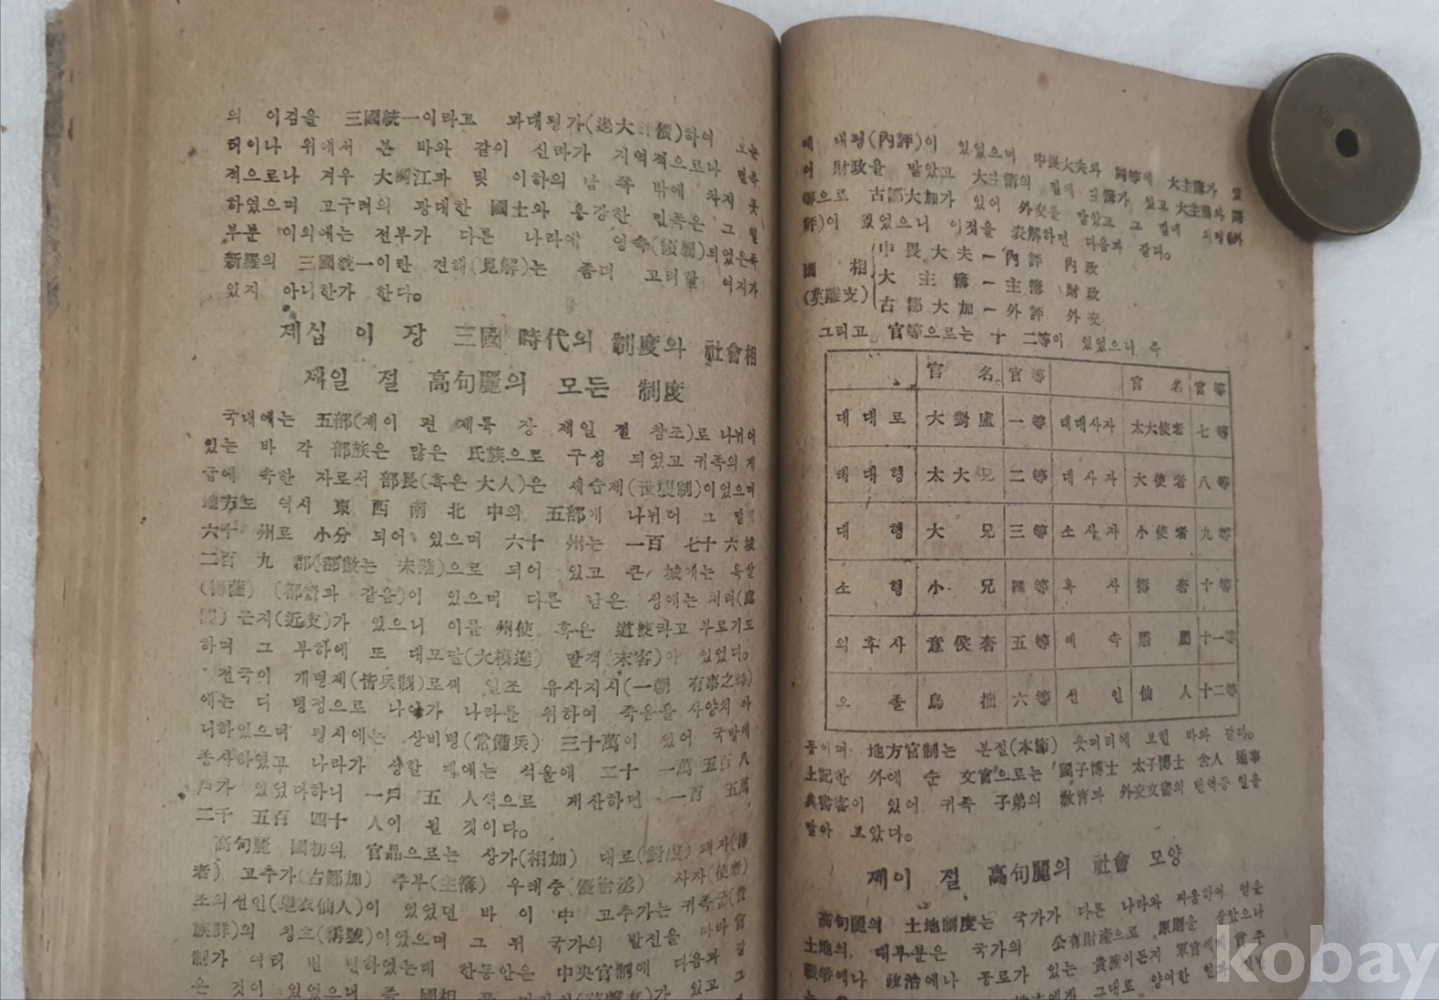 의 이검을 三國統一이라고 과대평가(過大評價)하여 오는
터이나 위에서 본 바와 같이 신라가 지역적으로나 민족
적으로나 겨우 大同江과 및 이하의 남 쪽 밖에 차지 못
하였으며 고구려의 광대한 國土와 용강한 민족은 그 일
부분 이외에는 전부가 다른 나라에 영속 되었은즉
新羅의 三國統一이란 견해(見解)는 좀더 고려할 여지가
있지 아니한가 한다。
제십 이 장 三國 時代의 制度와 社會相
제일 절 高句麗의 모든 制度
국내에는 五部(제이 편 제륙 장 제일 절 참조)로 나뉘어
있는 바 각 部族은 많은 氏族으로 구성 되었고 귀족의 계
급에 속한 자로서 部長(혹은 大人)은 세습제(世襲制)이었으며
地方도 역시 東 西 南 北 中의 五部에 나뉘어 그 밑에
六十 州로 小分 되어 있으며 六十 州는 一百 七十六城
二百 九 郡(郡數는 未詳)으로 되어 있고 큰 城에는 욕살
(褥薩) (都督과 같음)이 있으며 다른 남은 성에는 처려(處
閭) 근지(近支)가 있으니 이를 州使 혹은 道使라고 부르기도
하며 그 부하에 또 대모달(大模達) 말객(末客)이 있었다。
전국이 개병제(皆兵制)로써 일조 유사지시(一朝 有事之時)
에는 다 병정으로 나아가 나라를 위하여 죽음을 사양치 아
니하였으며 평시에는 상비병(常備兵) 三十萬이 있어 국방에
종사하였고 나라가 상할 때에는 석울에 二十 一萬 五百八
戶가 있었다하니 一戶 五 人식으로 계산하면 一百 五萬
二千 五百 四十 人이 될 것이다。
高句麗 國初의 官品으로는 상가(相加) 대로(對盧) 패자(沛
者) 고추가(古鄒加) 주부(主簿) 우태승(優台丞) 사자(使者)
조의선인(皂衣仙人)이 있었던 바 이 中 고추가는 귀족 (貴
族群)의 칭호(稱號)이었으며 그 뒤 국가의 발전을 따라 官
制가 여러 번 변하였는데 한동안은 中央官制에 다음과 같
은 것이 있었으니 즉 國相 가 있고 그
에 내평(內評)이 있었으며 中畏大夫와 同等에 大主簿가 있
어 財政을 맡았고 大主簿의 밑에 主簿가 있고 大主簿와 同
等으로 古鄒大加가 있어 外交를 맡았고 그 밑에 외평(外
評)이 있었으니 이것을 表解하면 다음과 같다。
國 相 (莫離支)
中畏大夫—內評 內政
大主簿—主簿 財政
古鄒大加—外評 外交
그리고 官等으로는 十 二等이 있었으니 즉
官 名 官等 官 名 官等
대대로 大對盧 一等 태대사자 太大使者 七等
태대형 太大兄 二等 대사자 大使者 八等
대 형 大 兄 三等 소사자 小使者 九等
소 형 小 兄 四等 욕 사 褥 奢 十等
의후사 意侯奢 五等 예 속 翳 屬 十一等
오 졸 烏 拙 六等 선 인 仙 人 十二等
등이며 地方官制는 본절(本節) 웃머리에 보인 바와 같다。
上記한 외에 순 文官으로는 國子博士 太子博士 舍人 通事
典書客이 있어 귀족 子弟의 敎育과 外交文書의 번역등 일을
맡아 보았다。
제이 절 高句麗의 社會 모양
高句麗의 土地制度는 국가가 다른 나라와 싸움하여 얻은
土地의 대부분은 국가의 公有財產으로 原則을 삼았으나
戰爭에나 政治에나 공로가 있는 貴族이든지 軍官에게 賞주
그대로 양여한
kobay